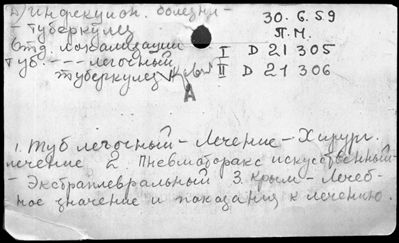 2) Инфекцион. болезни -
- туберкулез
30.6.59
П.М.
Отд. локализации
I D 21 305
Туб. --- легочный
туберкулез
II D 21 306
А
1. Туб легочный - Лечение - Хирург.
лечение 2. Пневмоторакс искусственный -
- Экстраплевральный 3. Крым - Лечеб-
ное значение и показания к лечению.